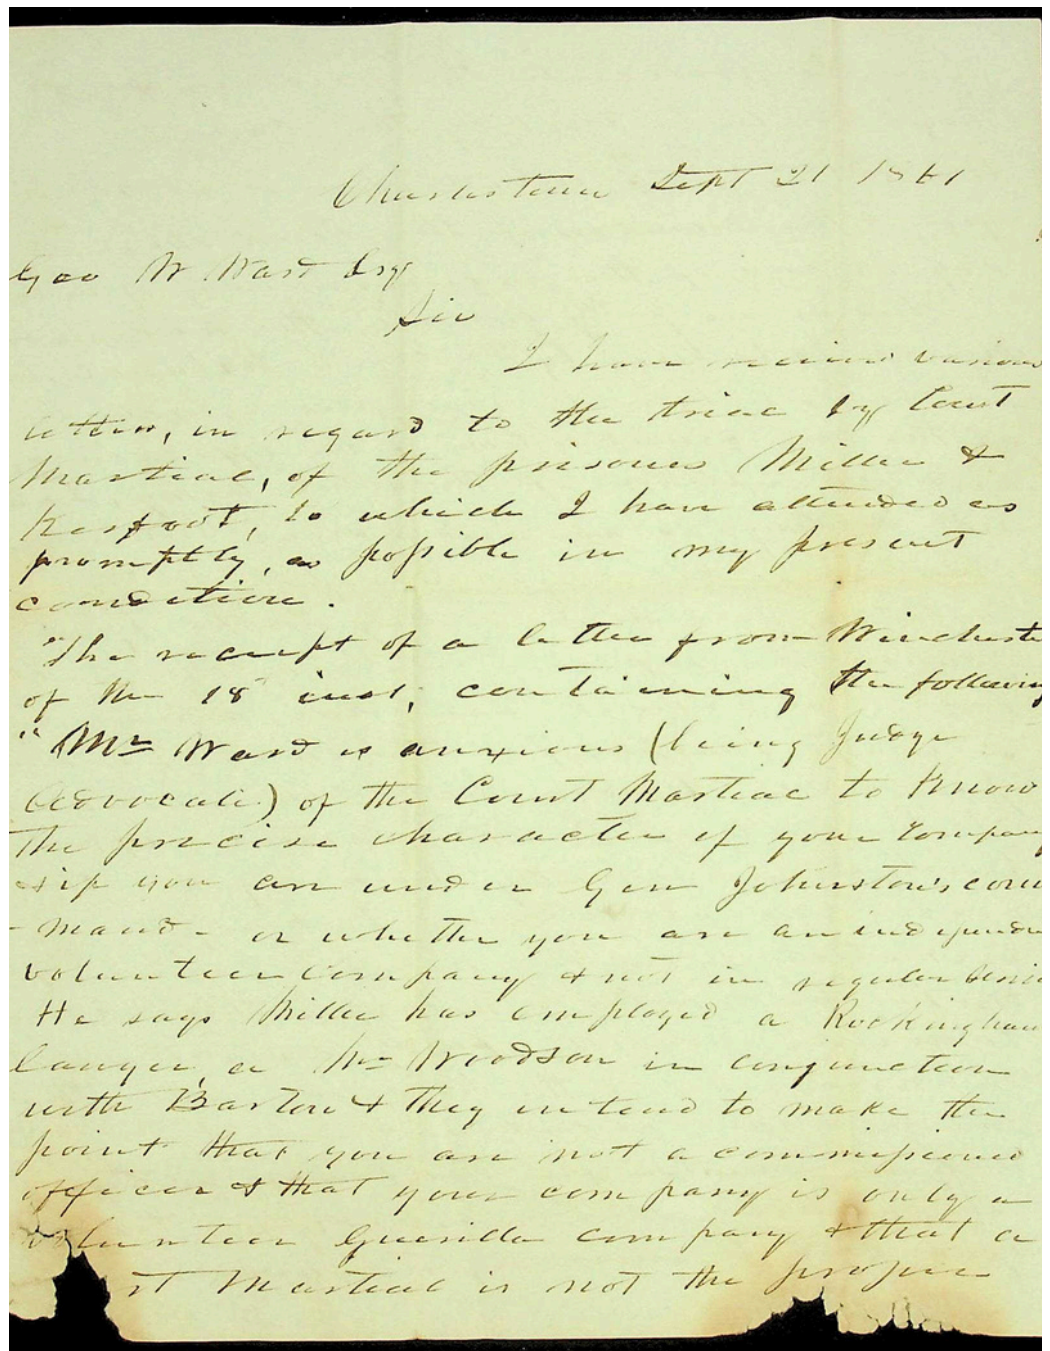 Charlestown Sept 21 1861
Geo W. Ward Esqr
Sir
I have received various
letters, in regard to the trial by Court
Martial, of the prisoners Miller &
Kerfoot, to which I have attended as
promptly, as possible in my present
condition.
The receipt of a letter from Winchester
of the 18 inst, containing the following
"Mr Ward is anxious (being Judge
Advocate) of the Court Martial to Know
the precise character of your Company
& if you are under Gen Johnston's com
-mand - or whether you are an independent
volunteer company & not in regular
He says Miller has employed a Rockingham
lawyer, a Mr Woodson in conjunction
with Barton & they intend to make the
point that you are not a commissioned
officer & that your company is only a
volunteer Guerilla company & that a
rt Martial is not the proper